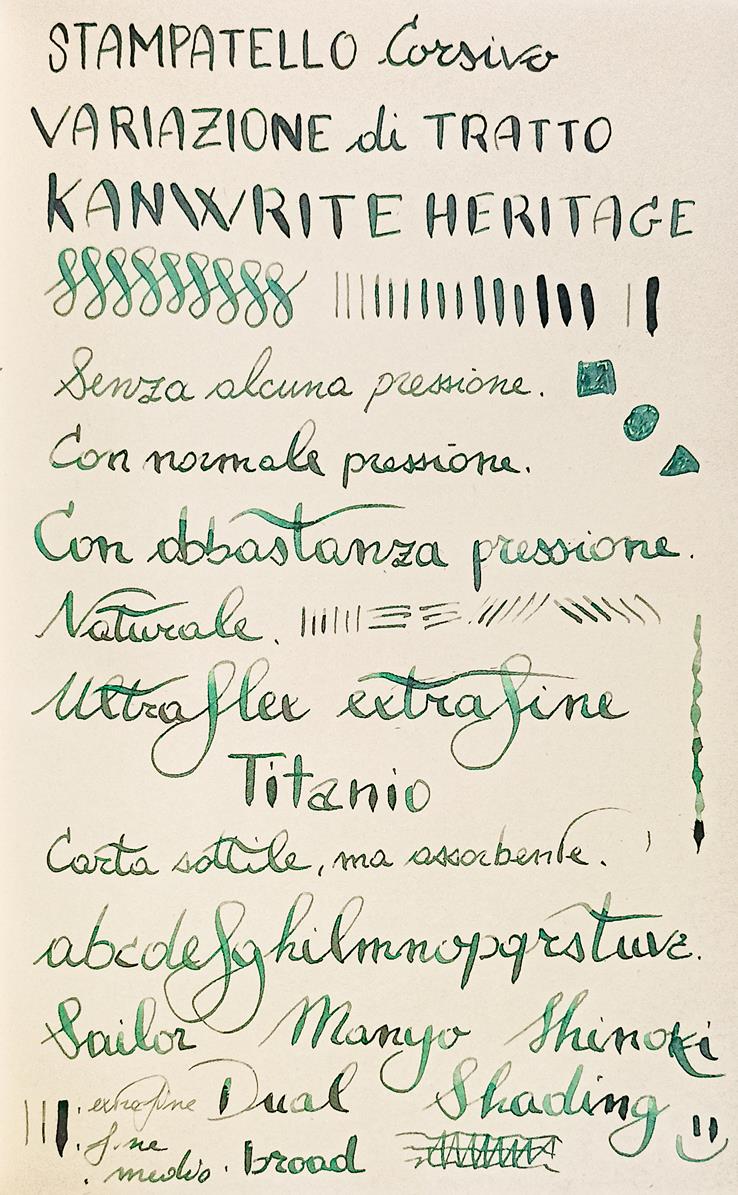 STAMPATELLO Corsivo
VARIAZIONE di TRATTO
KANWRITE HERITAGE
Senza alcuna pressione.
Con normale pressione.
Con abbastanza pressione.
Naturale.
Ultraflex extrafine
Titanio
Carta sottile, ma assorbente.
abcdefghilmnopqrstuvz.
Sailor Manyo Shinoki
. extrafine Dual Shading
. fine
. medio . broad